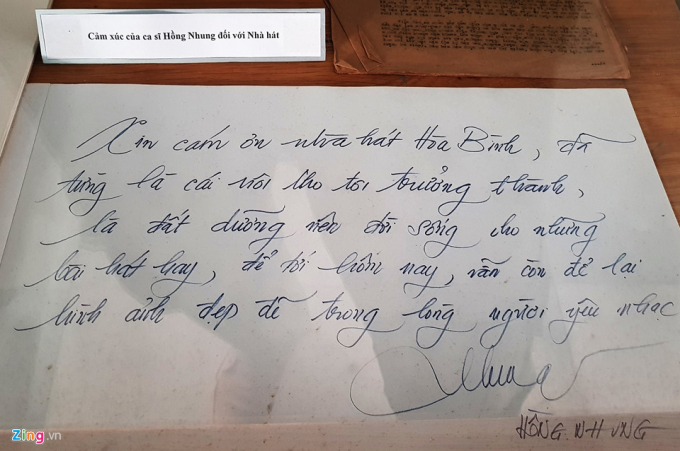 Cảm xúc của ca sĩ Hồng Nhung đối với Nhà hát
Xin cảm ơn nhà hát Hòa Bình, đã
từng là cái nôi cho tôi trưởng thành,
là đất dưỡng nên đời sống cho những
bài hát hay, để tới hôm nay, vẫn còn để lại
hình ảnh đẹp đẽ trong lòng người yêu nhạc
HỒNG NHUNG
Zing.vn